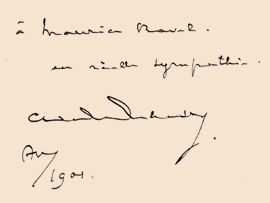 à Maurice Ravel.
en réelle sympathie.
Claude Debussy
Av/1901.